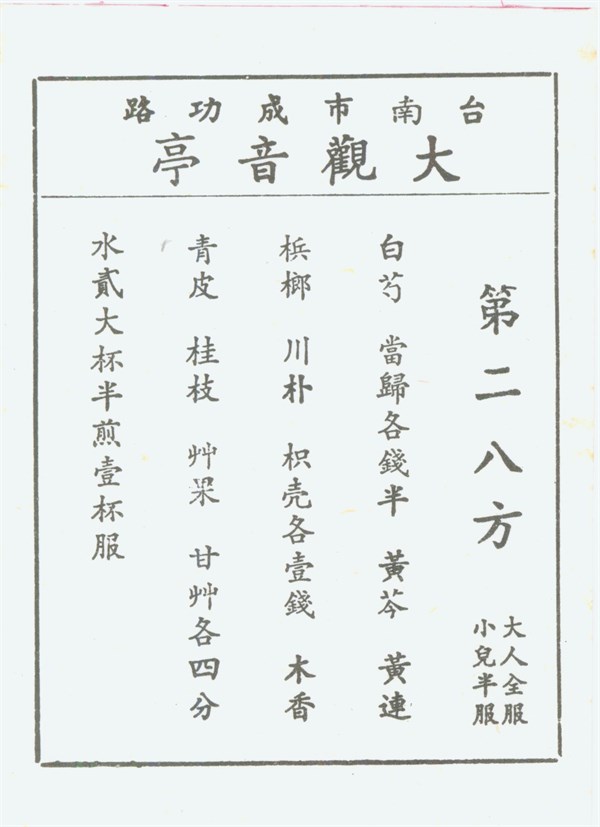 台南市成功路
大觀音亭
第二八方
大人全服
小兒半服
白芍 當歸各錢半 黃芩 黃連
梹榔 川朴 枳壳各壹錢 木香
青皮 桂枝 艸杲 甘艸各四分
水貳大杯半煎壹杯服